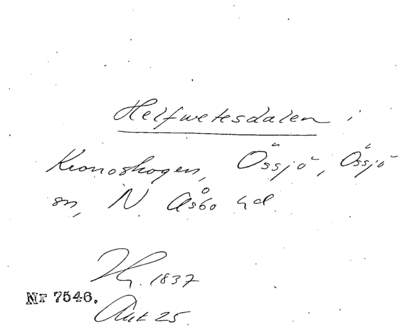 Helfwetesdalen i
Kronoskogen, Össjö, Össjö
sn, N. Åsbo hd.
1837
Nr 7546.
Akt 25.